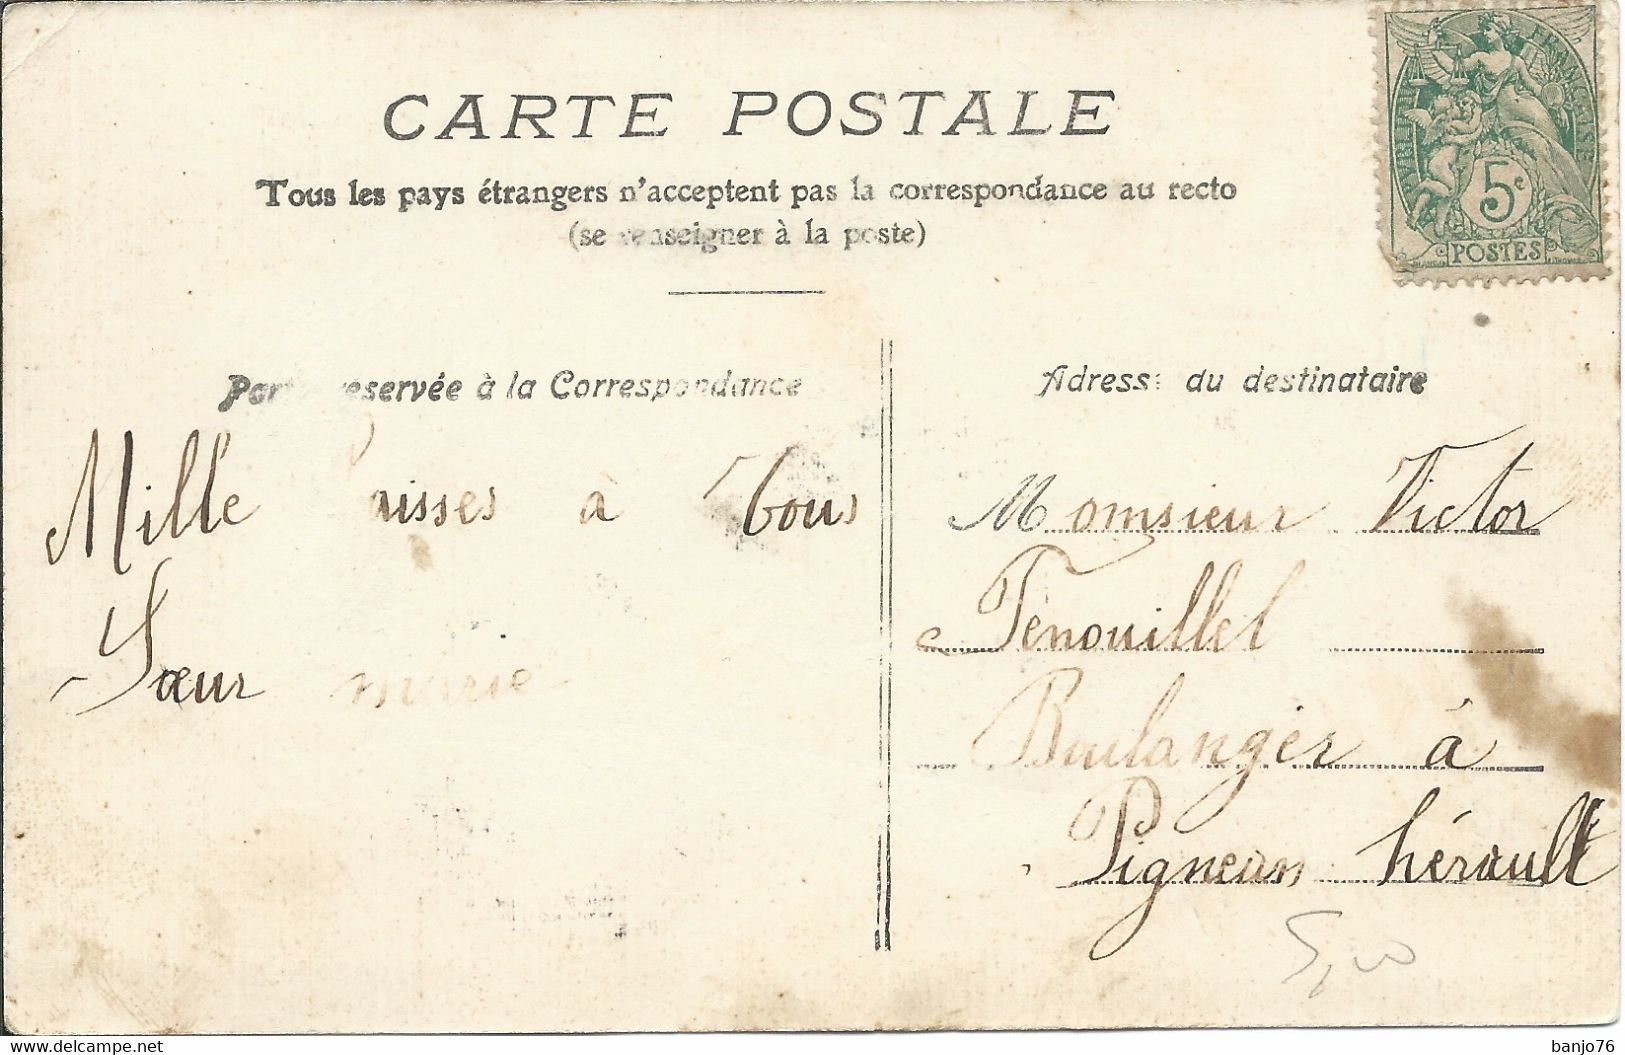 CARTE POSTALE
Tous les pays étrangers n'acceptent pas la correspondance au recto
(se renseigner à la poste)
FRANÇAISE
5c
POSTES
Partie réservée à la Correspondance
Adresse du destinataire
Mille Baisses à Tous
Sœur marie
Momsieur Victor
Fenouillet
Boulanger à
Pignean hérault
5,00
www.delcampe.net
banjo76